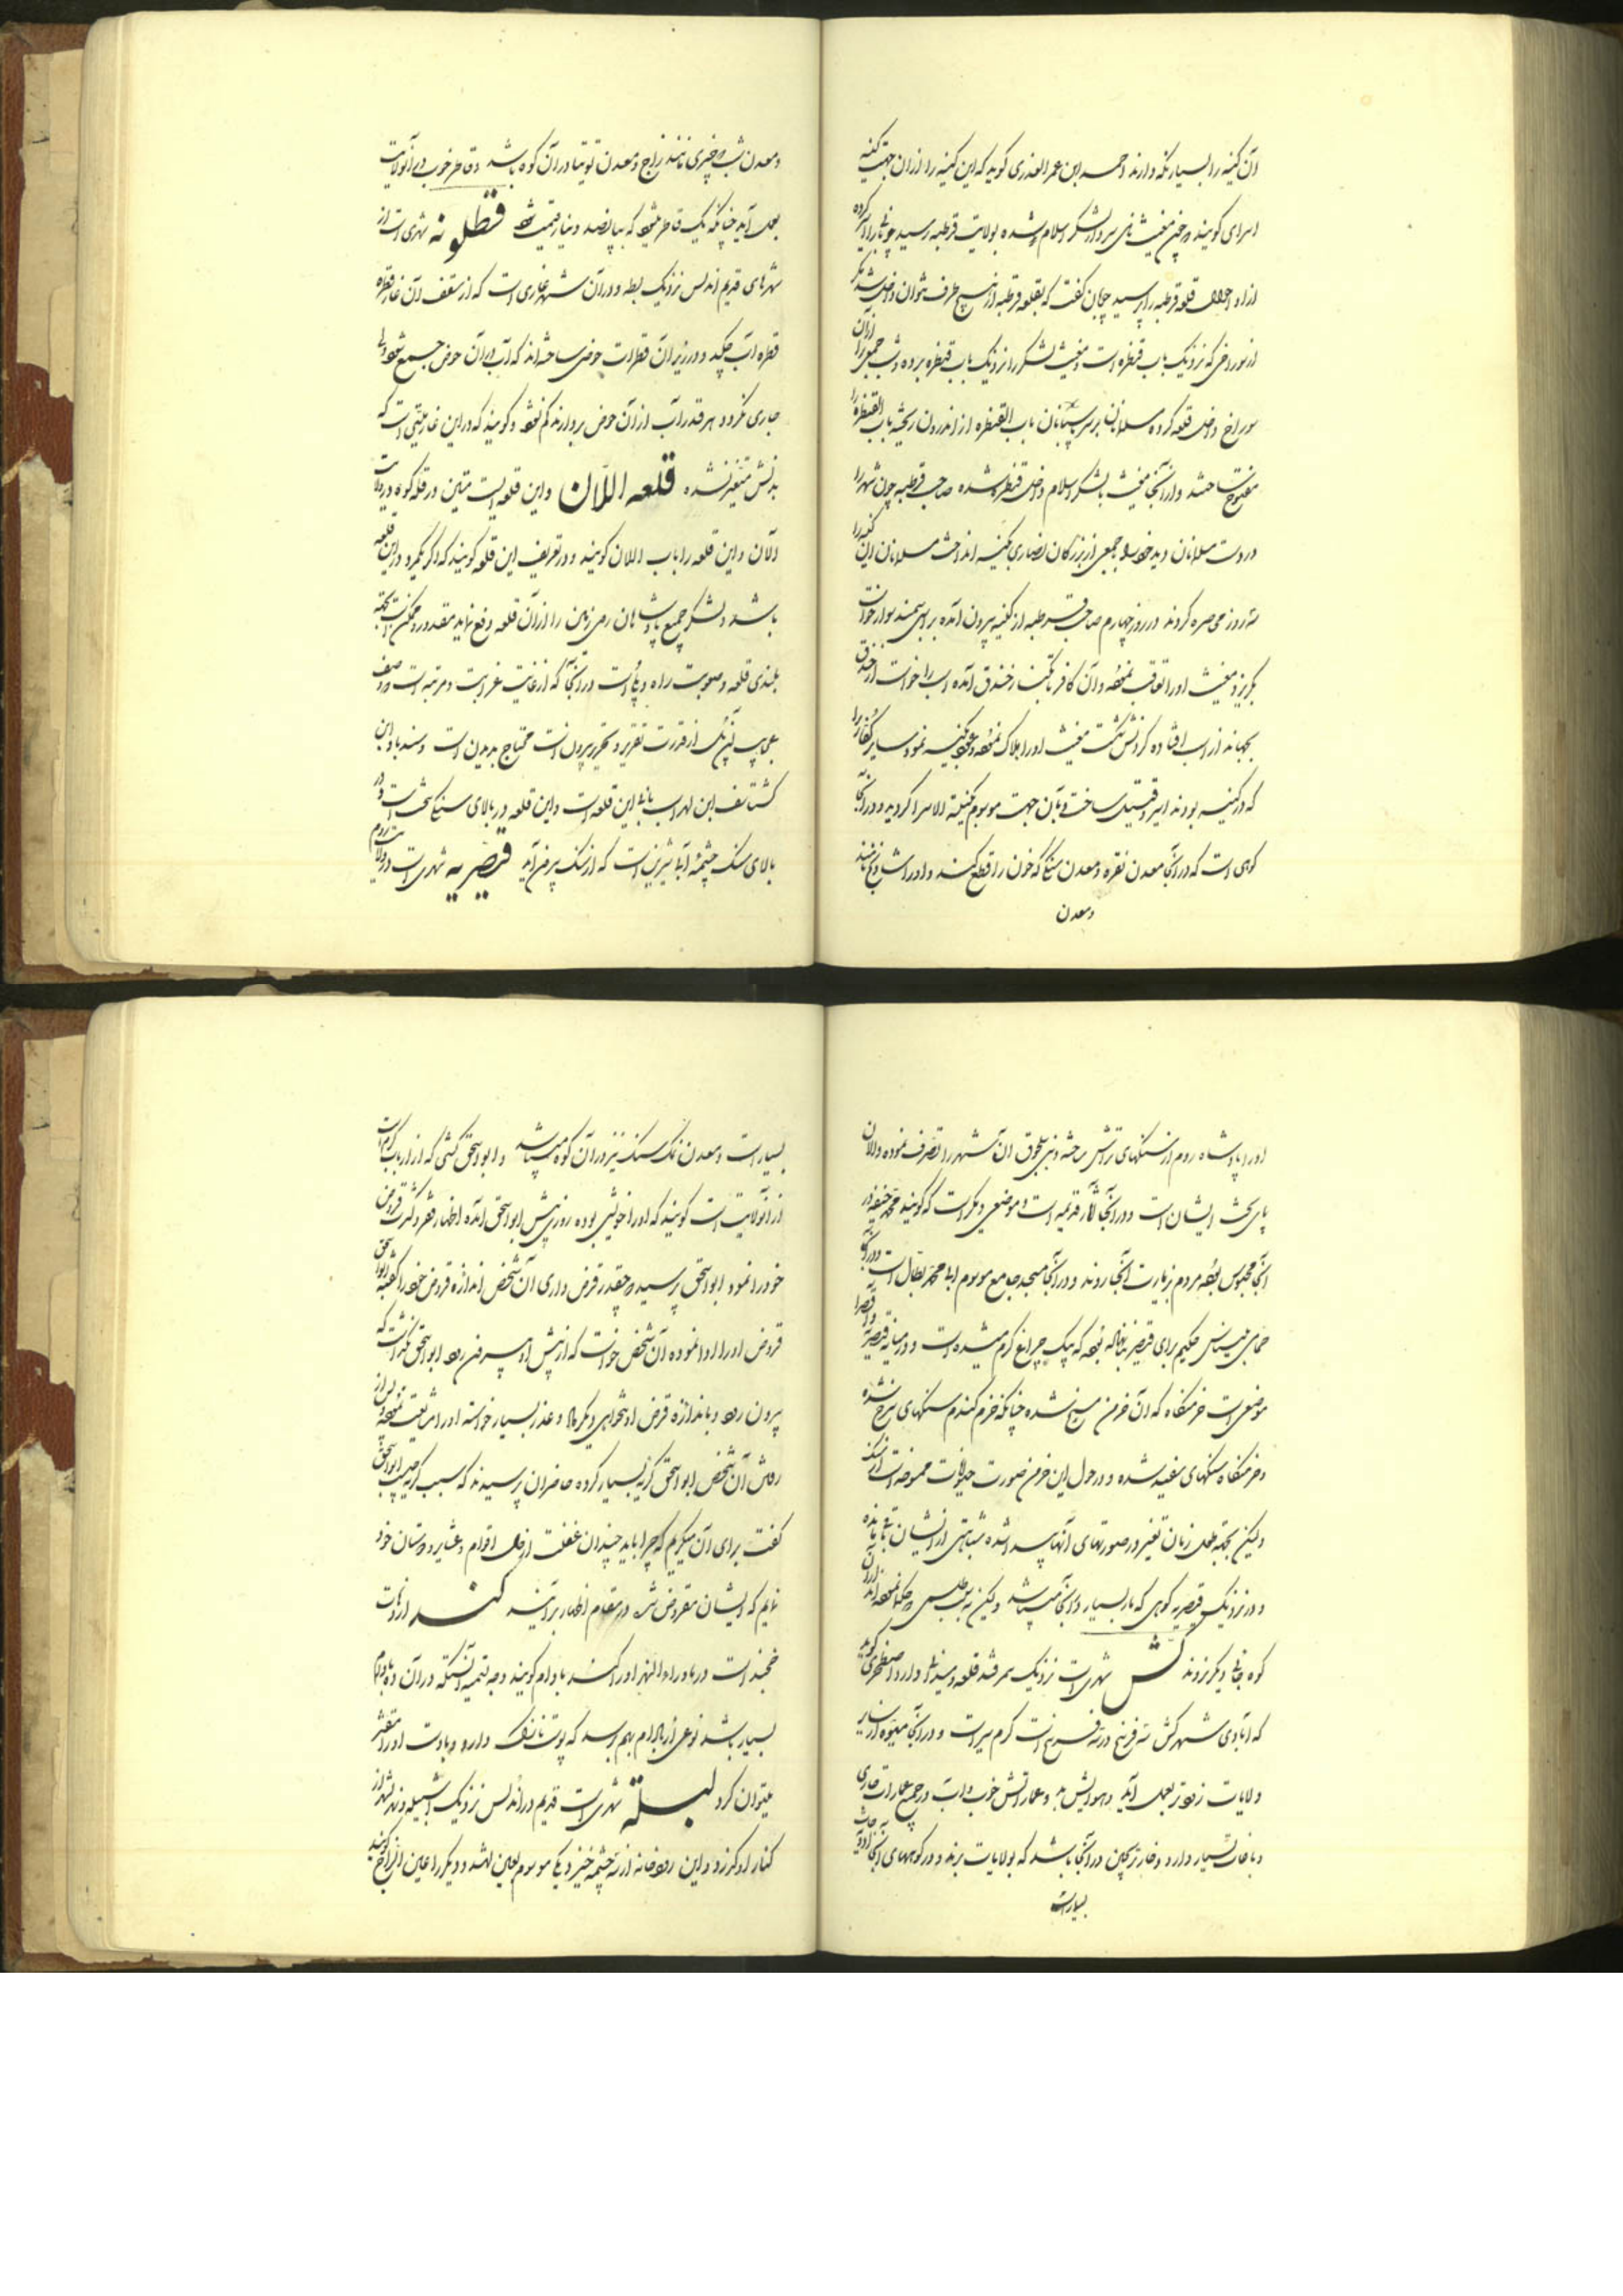 وآن کنیسه را بسیار نگه دارند و احمد ابن عمر العذری کوید که این کنیسه را از ان جهت کنیسه
اسرای کویند و چون مغیث سردار لشکر اسلام شده بولایت قرطبه رسید چوپانی را
از او احوال قلعه قرطبه را پرسید چوپان کفت که بقلعه قرطبه از هیچ طرف نتوان داخل شد مکر
از سوراخی که نزدیک باب قنطره است و مغیث لشکر را نزدیک باب قنطره برده و شب جمعی را از آن
سوراخ داخل قلعه کرده مسلمانان بر سر پاسبانان باب القنطره از اندرون ریخته باب القنطره را
مفتوح ساختند و از آنجا مغیث با لشکر اسلام داخل قنطره شده صاحب قرطبه چون شهر را
در دست مسلمانان دید خود با جمعی از بزرکان نصاری بکنیسه انداخت مسلمانان آن کنیسه را
سه روز محاصره کردند در روز چهارم صاحب قرطبه از کنیسه بیرون آمده بر اسبی سوار خواست
بکریزد مغیث او را تعاقب نموده و آن کافر بکنار خندق آمده اسب را خواست از خندق
بجهاند از اسب افتاده کردنش شکست مغیث او را هلاک نموده و رجوع بکنیسه نمود و سایر کفار را
که در کنیسه بودند اسیر و قتیل ساخت و بآن جهت موسوم بکنیسة الاسرا کردید و در آنجا
کوهی است که در آنجا معدن نقره و معدن سنکی که خون را قطع کند و او را شادنج نامند
ومعدن
ومعدن شب و چیزی مانند زاج و معدن توتیا در آن کوه باشد و قاطر خوب در آنولایت
بعمل آید چنانکه یک قاطر میشود که بپانصد دینار قیمت شود قطلونه شهری است از
شهرهای قدیم اندلس نزدیک بطه و در آن شهر غاری است که از سقف آن غار قطره
قطره آب چکد و در زیر آن قطرات حوضی ساخته‌اند که آب در آن حوض جمع شود ولی
جاری نکردد هر قدر آب از آن حوض بردارند کم نشود و کویند که در این غار میتی است که
بدنش متغیر نشده قلعه اللان و این قلعه ایست متین در قله کوه در ولایت
الان و این قلعه را باب اللان کویند و در تعریف این قلعه کویند که اکر یکمرد در این قلعه
باشد و لشکر جمیع پادشاهان روی زمین را از آن قلعه دفع نماید مقدور و ممکن است بجهت
بلندی قلعه و صعوبت راه و پلی است در آنجا که از غایت غرابت و مرتبه است وصف
عجایب آن پل از قدرت تقریر و تحریر بیرونست محتاج بدیدن است و سندباد ابن
کشتاسف ابن لهراسب بانی این قلعه است و این قلعه در بالای سنک سخت است و در
بالای سنک چشمهٔ آب شیرین است که از سنک بیرون آید قیصریه شهری است در ولایت روم
او را پادشاه روم از سنکهای تراش ساخته و بنی سلجوق آن شهر را تصرف نموده و الان
پای تخت ایشان است و در آنجا آثار قدیمه است و موضعی دیکر است که کویند محمد حنفیه در
آنجا محبوس بوده مردم بزیارت آنجا روند و در آنجا مسجد جامع موسوم ابا محمد بطال است و در آنجا
حمامی بلیناس حکیم برای قیصر بنا نهاده بود که بیک چراغ کرم میشده است و در میانه قیصریه و اقصرا
موضعی است خرمنکاه که آن خرمن مسخ شده چنانکه خرم کندم سنکهای سرخ شده
و خرمنکاه سنکهای سفید شده و در حول این خرمن صورت حیوانات ممسوخه است از سنک
ولیکن بجهت طول زمان تغیر در صورتهای آنها پیدا شده شباهتی از ایشان باقی مانده
و در نزدیک قیصریه کوهی که مار بسیار در آنجا میباشد ولیکن بسبب طلسمی که حکما نموده‌اند از آن
کوه جای دیکر نروند کش شهری است نزدیک سمرقند قلعه و ربضی دارد و اصطخری کوید
که آبادی شهر کش سه فرسخ در سه فرسخ است کرم سیر است و در آنجا میوه از سایر
ولایات زودتر بعمل آید و هوایش بد و عمارتش خوب و آب در جمیع عمارات جاری
و باغات بسیار دارد و خار ترنجبین در آنجا باشد که بولایات برند و در کوههای آنجا ادویه‌جات
بسیار است
بسیار است و معدن نمک سنک نیز در آن کوه میباشد و ابواسحق کشی که از ارباب کرامات
از آنولایت است کویند که او را خویشی بوده روزی پیش ابواسحق آمده اظهار فقر و کثرت قروض
خود را نمود ابواسحق پرسید چقدر قرض داری آن شخص اندازه قروض خود را کفته ابواسحق
قروض او را ادا نموده آن شخص خواست که از پیش او بیرون رود ابواسحق نکذاشت که
بیرون رود و باندازه قرض او تنخواهی دیکر داده و عذر بسیار خواسته او را مشایعت نموده پس از
رفتن آن شخص ابواسحق کریه بسیار کرده حاضران پرسیدند که سبب کریه چیست ابواسحق
کفت برای آن میکریم که چرا باید چندان غفلت از حال اقوام و عشایر و دوستان خود
نمایم که ایشان مقروض شده در مقام اظهار برآیند کند از دهات
خجند است در ماوراءالنهر او را کند بادام کویند وجه تسمیه آنستکه در آن ده بادام
بسیار باشد نوعی از بادام بهم رسد که پوست نازک دارد و با دست او را مقشر
میتوان کرد لبلة شهری است قدیم در اندلس نزدیک اشبیلیه و نهر شهر از
کنار او کذرد و این رودخانه از سه چشمه خیزد یکی موسوم بعین لهشه و دیکر را عین الزاج کویند